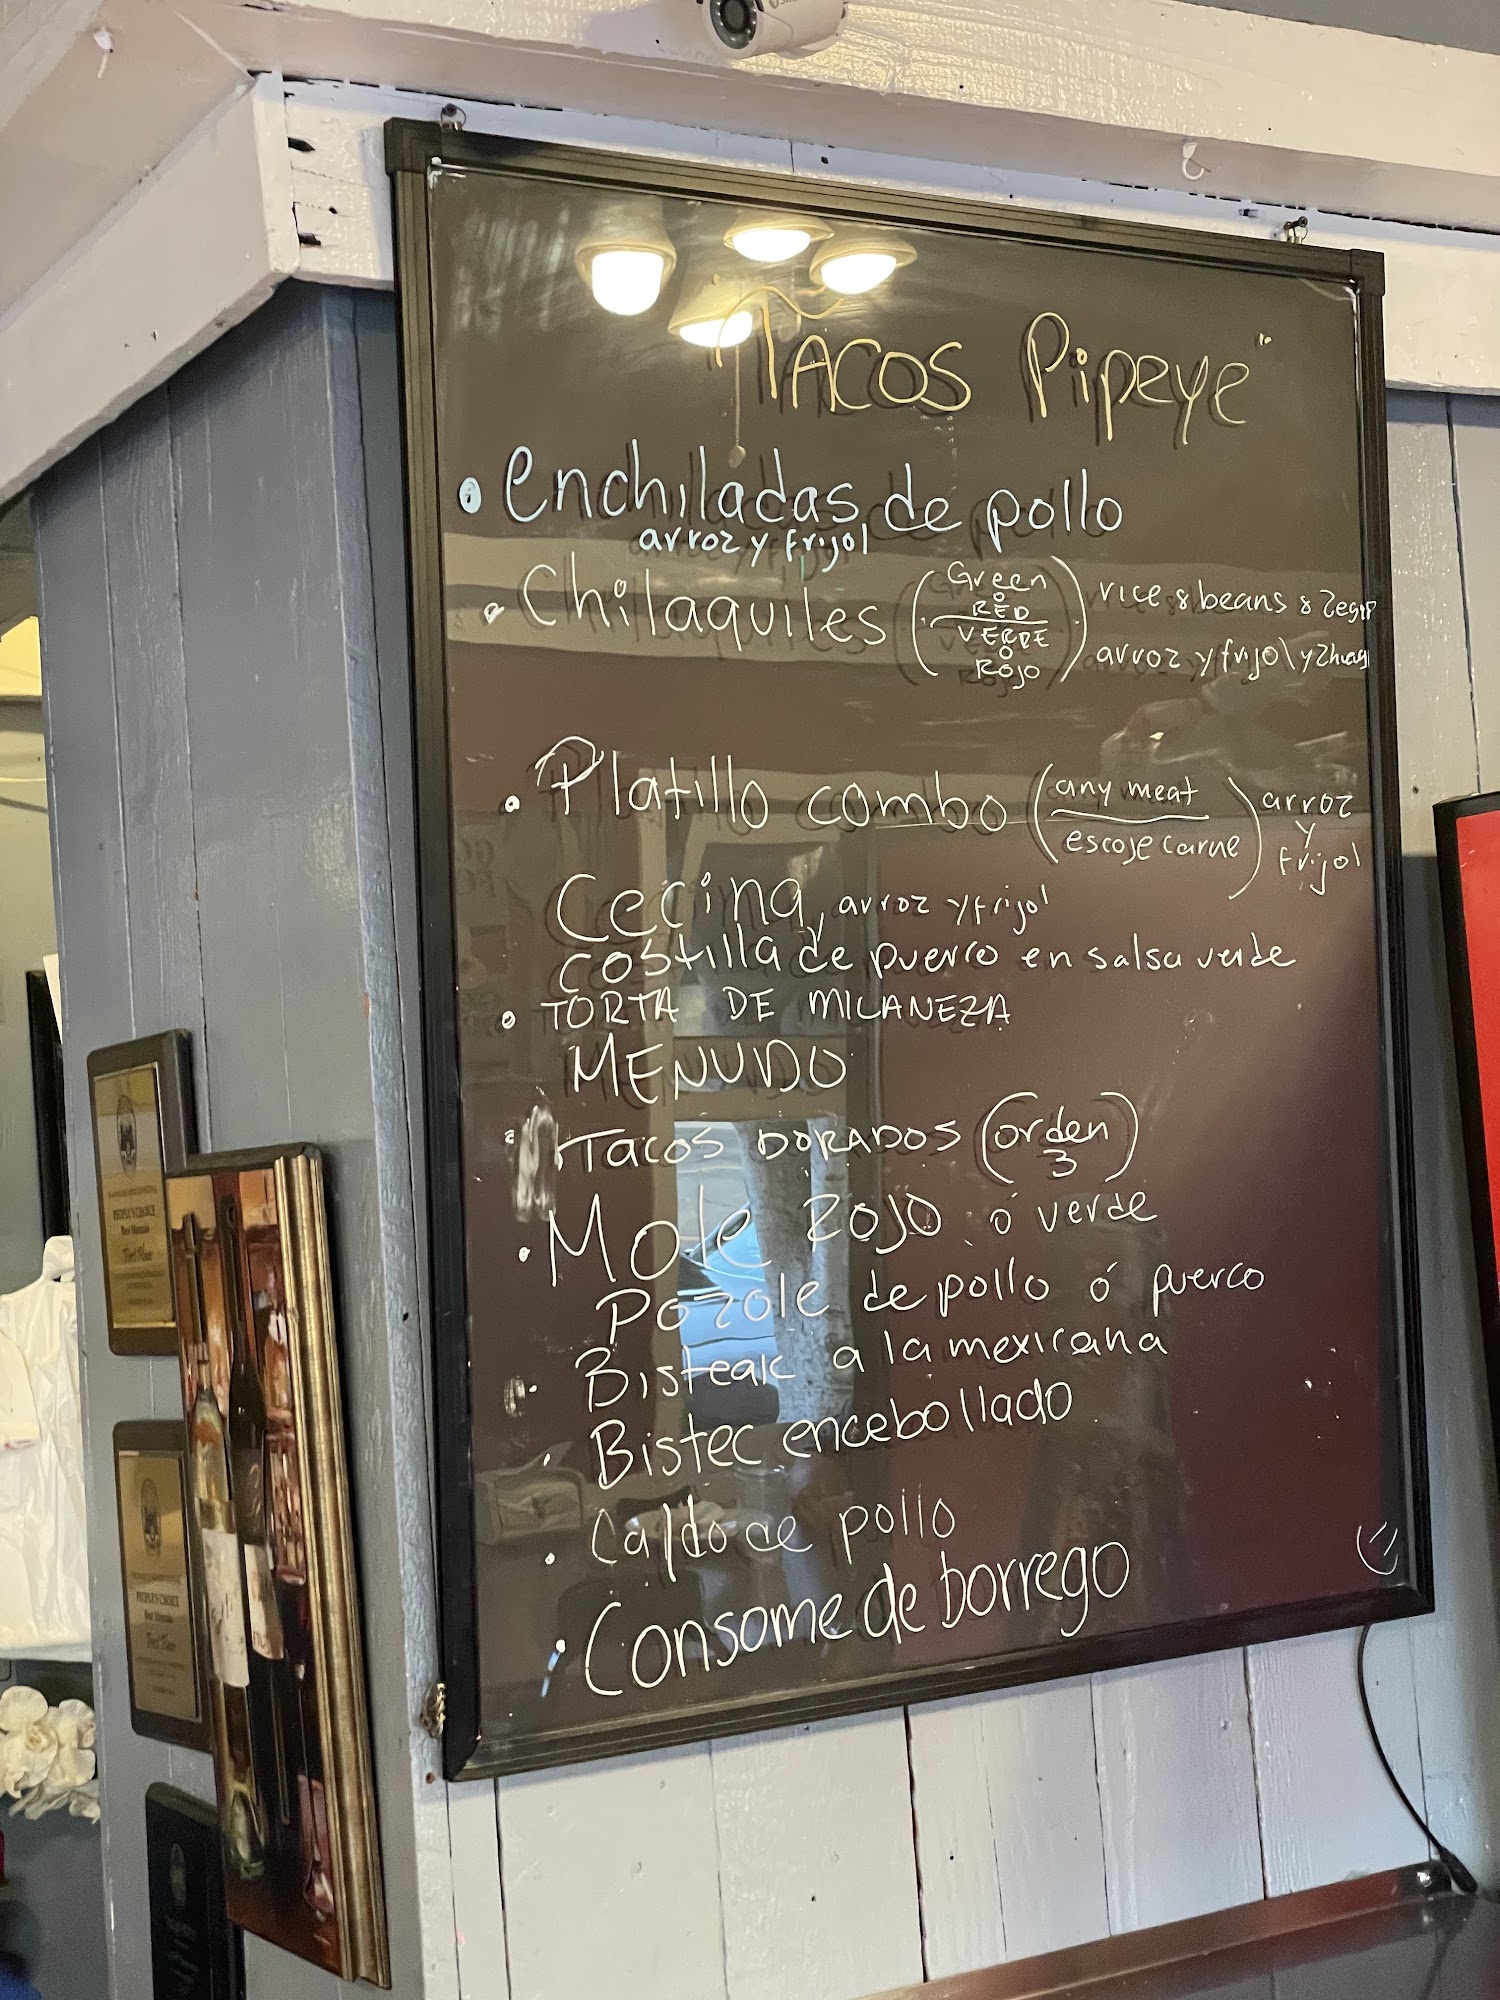 "TACOS Pipeye"
• enchiladas de pollo
arroz y frijol
• Chilaquiles (Green o RED / VERDE O ROJO) rice & beans & 2egg
arroz y frijol y 2hueg
• Platillo combo (any meat / escoje carne) arroz y frijol
Cecina, arroz y frijol
costilla de puerco en salsa verde
• TORTA DE MILANEZA
MENUDO
TACOS DORADOS (orden 3)
• Mole Rojo ó verde
Pozole de pollo ó puerco
• Bisteak a la mexicana
• Bistec encebollado
• Caldo de pollo
• Consome de borrego
PEOPLE'S CHOICE
Best Menudo
First Place
PEOPLE'S CHOICE
Best Menudo